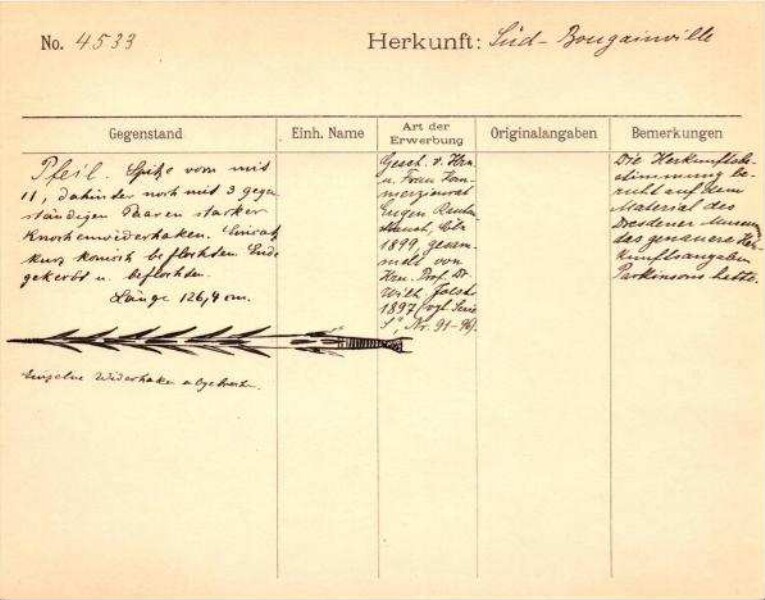 No. 4533
Herkunft: Süd-Bougainville
Gegenstand
Einh. Name
Art der Erwerbung
Originalangaben
Bemerkungen
Pfeil. Spitze vorn mit
11, dahinter noch mit 3 gegen
ständigen Paaren starker
Knochenwiderhaken. Einsatz
kurz konisch beflochten. Ende
gekerbt u. beflochten.
Länge 126,4 cm.
Einzelne Widerhaken abgebrochen.
Gesch. v. Hrn
u. Frau Kom-
merzienrat
Eugen Rauten-
strauch, Cöln
1899, gesam-
melt von
Hrn. Prof. Dr
Wilh. Joest
1897 (vgl. Serie
Nr. 91-96).
Die Herkunftsbe-
stimmung be-
ruht auf dem
Material des
Dresdener Museum
das genauere Her-
kunftsangaben
Parkinsons hatte.